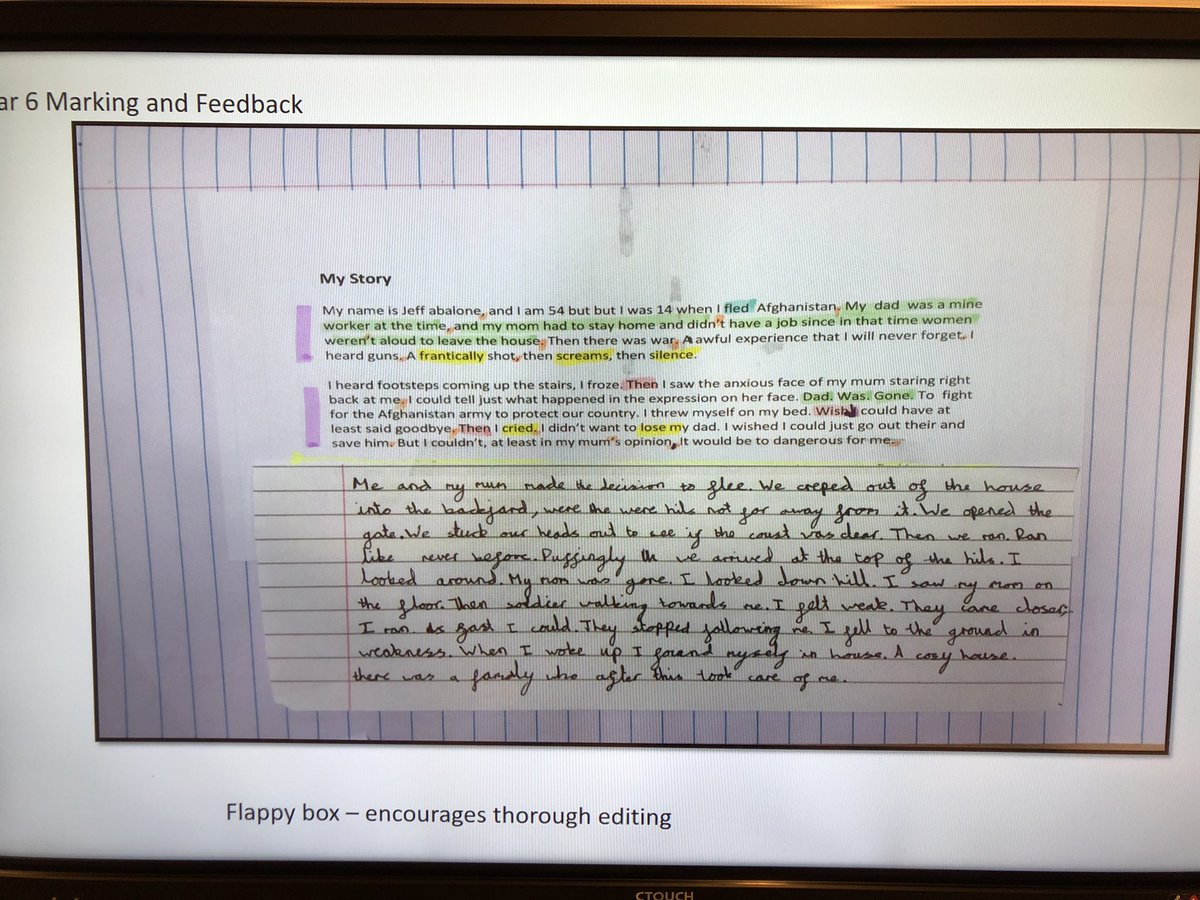 ar 6 Marking and Feedback
My Story
My name is Jeff abalone, and I am 54 but but I was 14 when I fled Afghanistan. My dad was a mine
worker at the time, and my mom had to stay home and didn't have a job since in that time women
weren't aloud to leave the house. Then there was war. A awful experience that I will never forget. I
heard guns. A frantically shot, then screams, then silence.
I heard footsteps coming up the stairs, I froze. Then I saw the anxious face of my mum staring right
back at me. I could tell just what happened in the expression on her face. Dad. Was. Gone. To fight
for the Afghanistan army to protect our country. I threw myself on my bed. Wish I could have at
least said goodbye. Then I cried. I didn't want to lose my dad. I wished I could just go out their and
save him. But I couldn't, at least in my mum's opinion. It would be to dangerous for me.
Me and my mum made the decision to flee. We creped out of the house
into the backjard, were the were hils not far away from it. We opened the
gate. We stuck our heads out to see if the coast was clear. Then we ran. Ran
like never before. Puffingly we arrived at the top of the hils. I
looked around. My mom was gone. I looked down hill. I saw my mom on
the floor. Then soldier walking towards me. I felt weak. They came closer.
I ran. As fast I could. They stopped following me. I fell to the ground in
weakness. When I woke up I found myself in house. A cosy house.
there was a family who after this took care of me.
Flappy box – encourages thorough editing
CTOUCH